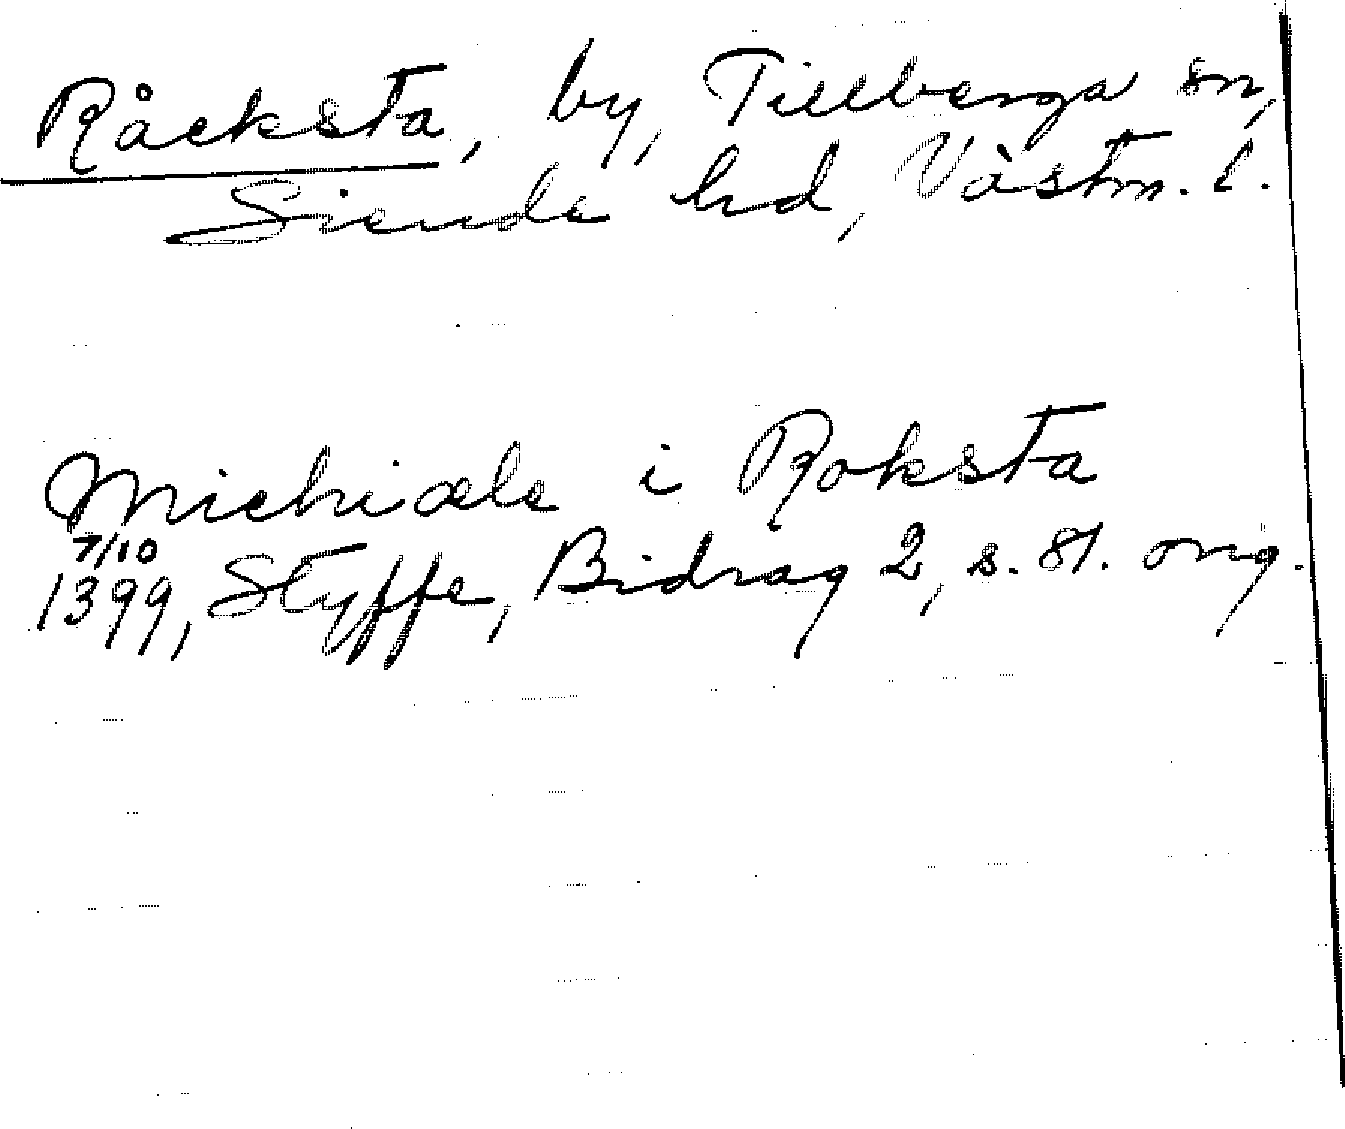 Råcksta, by, Tillberga sn,
Siende hd, Västm. l.
Michiæls i Roksta
7/10
1399, Styffe, Bidrag 2, s. 81. orig.